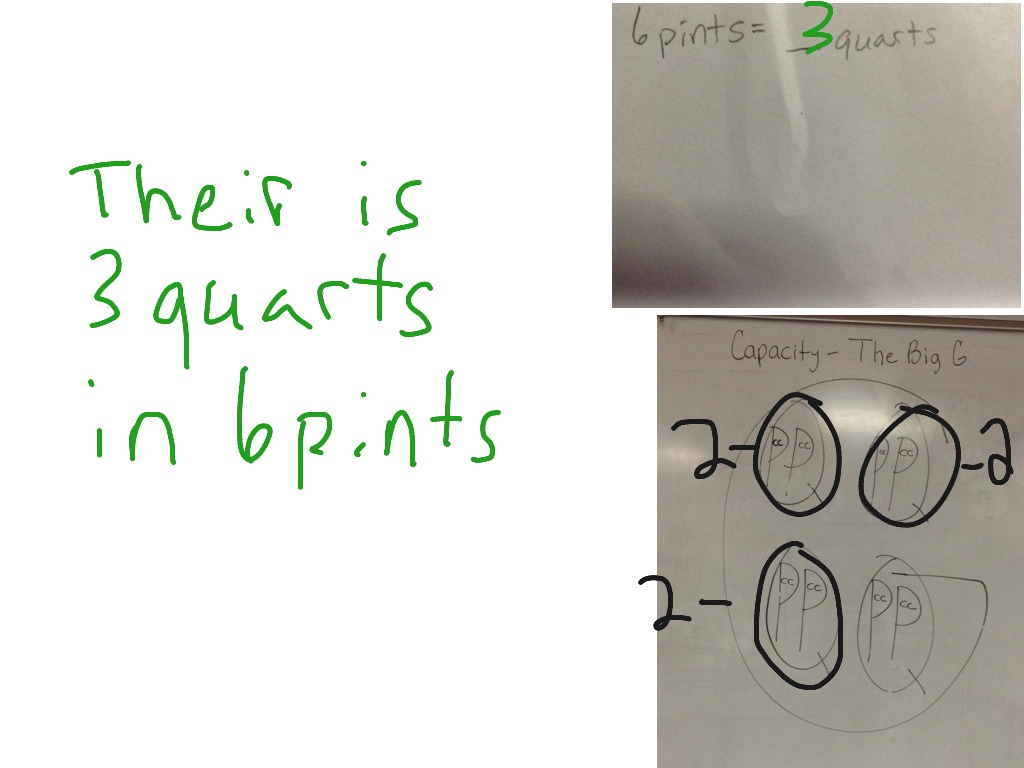 6 pints = 3 quarts
Their is
3 quarts
in 6 pints
Capacity - The Big G
2 - P cc P cc Q
P cc P cc Q - 2
2 - P cc P cc Q
P cc P cc Q